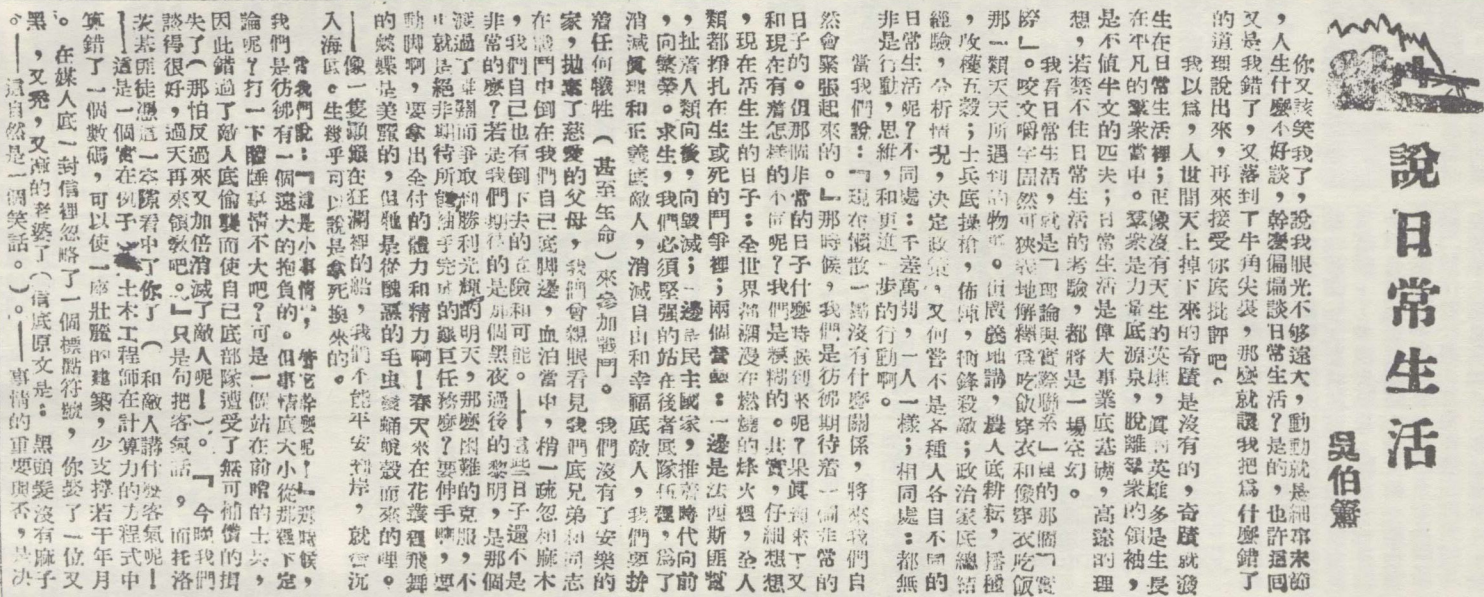 說日常生活
吳伯簫
你又該笑我了，說我眼光不够遠大，動動就是細事末節
，人生什麼不好談，幹麼偏偏談日常生活？是的，也許這回
又是我錯了，又落到了牛角尖裏，那麼就讓我把爲什麼錯了
的道理說出來，再來接受你底批評吧。
我以爲，人世間天上掉下來的奇蹟是沒有的，奇蹟就發
生在日常生活裡；正像沒有天生的英雄，真正英雄多是生長
在平凡的羣衆當中。羣衆是力量底源泉，脫離羣衆的領袖，
是不值半文的匹夫；日常生活是偉大事業底基礎，高遠的理
想，若禁不住日常生活的考驗，都將是一場空幻。
我看日常生活，就是「理論與實際聯系」裏的那個「實
際」。咬文嚼字固然可狹義地解釋爲吃飯穿衣和像穿衣吃飯
那一類天天所遇到的物事。但廣義地講，農人底耕耘，播種
，收穫五穀；士兵底操槍，佈陣，衝鋒殺敵；政治家底總結
經驗，分析情況，決定政策，又何嘗不是各種人各自不同的
日常生活呢？不同處：千差萬別，一人一樣；相同處：都無
非是行動，思維，和更進一步的行動啊。
當我們說：『現在鬆散一點沒有什麼關係，將來我們自
然會緊張起來的。』那時候，我們是彷彿期待着一個非常的
日子的。但那個非常的日子什麼時候到來呢？果真到來了又
和現在有着怎樣的不同呢？我們是模糊的。其實，仔細想想
，現在活生生的日子：全世界瀰漫在燃燒的烽火裡，全人
類都掙扎在生或死的鬥爭裡；兩個營壘：一邊是法西斯匪幫
，扯着人類向後，向毀滅；一邊是民主國家，推着時代向前
，向繁榮。求生，我們必須堅强的站在後者底隊伍裡，爲了
消滅眞理和正義底敵人，消滅自由和幸福底敵人，我們要拚
着任何犧牲（甚至生命）來參加戰鬥。我們沒有了安樂的
家，拋棄了慈愛的父母，我們曾親眼看見我們底兄弟和同志
在戰鬥中倒在我們自己底脚邊，血泊當中，稍一疏忽和麻木
，我們自己也有倒下去的危險和可能。——這些日子還不是
非常的麼？若是我們期待的是那個黑夜過後的黎明，是那個
渡過了難關而爭取到勝利光輝的明天，那麼困難的克服，不
也就是絕非期待所能袖手完成的艱巨任務麼？要伸手啊，要
動脚啊，要拿出全付的體力和精力啊！春天來在花叢裡飛舞
的蝴蝶是美麗的，但牠是從醜惡的毛虫變蛹蛻殼而來的哩。
——像一隻顛簸在狂瀾裡的船，我們不能平安到岸，就會沉
入海底。生幾乎可以說是拿死換來的。
當我們說：『這是小事情，管它幹麼呢！』那時候，
我們是彷彿有一個遠大的抱負的。但事情底大小從那裡下定
論呢？打一下瞌睡事情不大吧？可是一個站在前哨的士兵，
因此錯過了敵人底偷襲而使自己底部隊遭受了無可補償的損
失了（那怕反過來又加倍消滅了敵人呢！）。『今晚我們
談得很好，過天再來領敎吧。』只是句把客氣話，而托洛
茨基匪徒憑這一套隙看中了你了（和敵人講什麼客氣呢！
——這是一個實在例子）。土木工程師在計算力的方程式中
算錯了一個數碼，可以使一座壯麗的建築，少支撐若干年月
。在媒人底一封信裡忽略了一個標點符號，你娶了一位又
黑，又禿，又麻的老婆了（信底原文是：黑頭髮沒有麻子
。——這自然是一個笑話。）。——事情的重要與否，是决